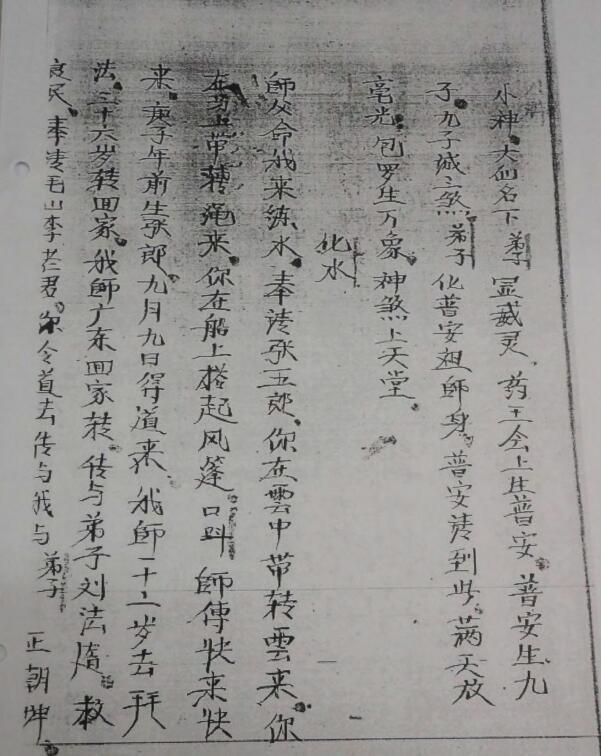 小神大仙名下弟子显威灵、药王会上生普安。普安生九
子。九子成煞。弟子化普安祖师身。普安请到此。满天放
毫光。包罗生万象。神煞上天堂。
化水
師父命我来练水。奉请张五郎、你在雲中带转雲来。你
带转绳来。你在船上搭起风篷。師傅快来快
来。庚子年前生张郎。九月九日得道来。我師一十二岁去拜
法。三十六岁转回家。我師广东回家转。传与弟子刘法隋。救
良民。奉请毛山李老君。令道去传与我与弟子 正朝坤。